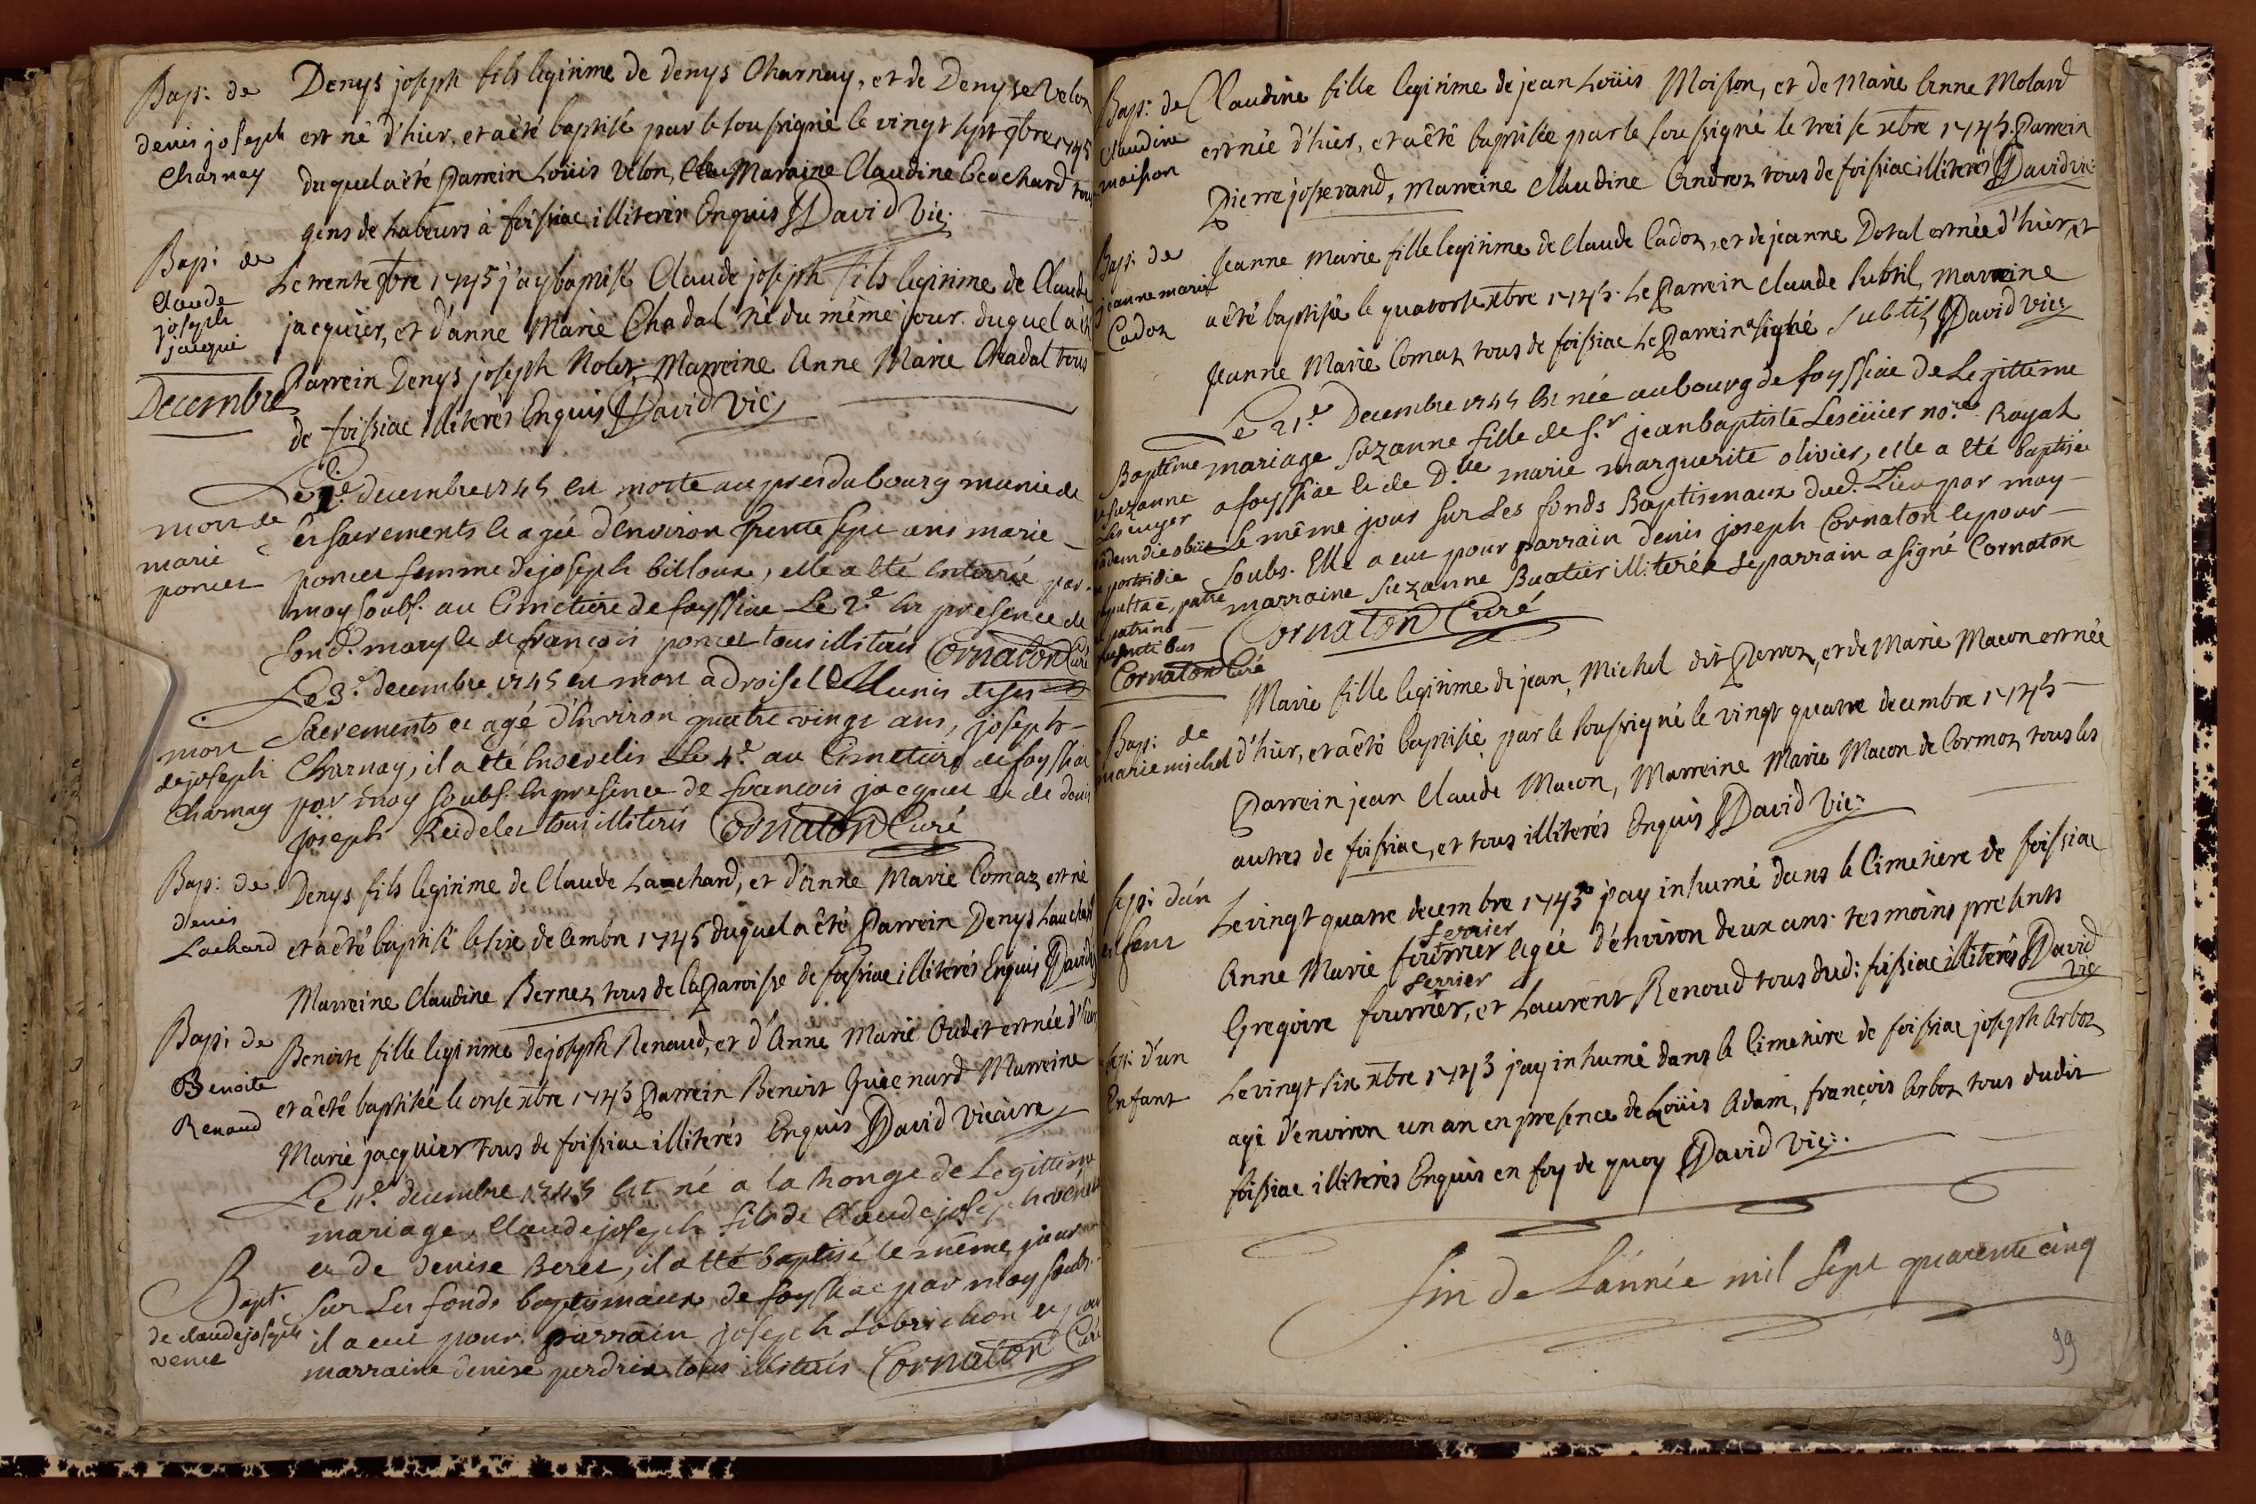 Bap: de
denis joseph
Charnay
Denys joseph fils legitime de denys Charnay, et de Denyse Velon
est né d'hier, et a êté baptisé par le soussigné le vingt sept 9bre 1745
duquel a êté Parrein Loüis Velon, Marraine Claudine Beachard tous
gens de labeurs à foissiac illiterés Enquis David Vic:
Bap: de
Claude
joseph
jacquié
Le trente 9bre 1745 j'ay baptisé Claude joseph fils legitime de Claude
jacquier, et d'anne Marie Chadal né du même jour. duquel a été
Parrein Denys joseph Nolet, Marreine Anne Marie Chadal tous
de foissiac illiterés Enquis David Vic:
Decembre
mort de
marie
poncet
Le 1.e decembre 1745 est morte au pres du bourg munie de
ses sacrements et agée d'Environ trente sept ans marie
poncet femme de joseph billoux, elle a été Enterrée par
moy soubs. au Cimetiere de foyssiac Le 2.e En presence de
son d. mary et de françois poncet tous illiterés Cornaton Curé
mort
de joseph
Charnay
Le 3.e decembre 1745 est mort a droisel Munis de ses
Sacrements et agé d'Environ quatre vingt ans, joseph
Charnay, il a été Ensevelis Le 4.e au Cimetiere de foyssiac
par moy soubs. En presence de françois jacquet et de denis
joseph Reidelet tous illiterés Cornaton Curé
Bap: de
denis
Lachard
Denys fils legitime de Claude Lauchard, et d'anne Marie Comaz est né
et a êté baptisé le six decembre 1745 duquel a êté Parrein Denys Lauchard
Marreine Claudine Bernez tous de la Paroisse de foissiac illiterés Enquis David
Bap: de
Benoite
Renaud
Benoite fille legitime de joseph Renaud, et d'Anne Marie Oudet est née d'hier
et a êté baptisée le onse xbre 1745 Parrein Benoit Guienard Marreine
Marie jacquier tous de foissiac illiterés Enquis David Vicaire
Bapt.
de claude joseph
venet
Le 11.e decembre 1745 Est né a la Ronge de Legittime
mariage, Claude joseph fils de Claude joseph venet
et de denise Beret, il a été baptisé le même jour
sur Les fonds baptismaux de foyssiac par moy soubs.
il a eut pour parrain joseph Labrichon et pour
marraine denise perdrix tous illiterés Cornaton Curé
Bap: de
Claudine
moisson
Claudine fille legitime de jean Loüis Moisson, et de Marie Anne Molard
est née d'hier, et a êté baptisée par le soussigné le treise xbre 1745. Parrein
Pierre josserand, Marreine Claudine Andrez tous de foissiac illiterés David vic:
Bap: de
jeanne marie
Cadoz
Jeanne Marie fille legitime de Claude Cadoz, et de jeanne Dotal est née d'hier, et
a êté baptisée le quatorse xbre 1745. Le Parrein Claude Subtil, Marreine
Jeanne Marie Comaz tous de foissiac Le Parrein signé Subtil David Vic:
Baptême
de suzanne
Lescuyer
eadem die obiit
postridie
sepulta e, patre
et patrino
presentibus
Cornaton Curé
Le 21.e Decembre 1745 Est née au bourg de foyssiac De Legittime
mariage Suzanne fille de s.r jean baptiste Lescüier no.re Royal
a foyssiac et de D.lle marie marguerite olivier, elle a été baptisée
Le même jour sur Les fonds Baptismaux dud. Lieu par moy
soubs. Elle a eut pour parrain denis joseph Cornaton et pour
marraine Suzanne Buatier illiterée Le parrain a signé Cornaton
Cornaton Curé
Bap: de
marie michel
Marie fille legitime de jean, Michel dit Perroz, et de Marie Macon est née
d'hier, et a êté baptisée par le soussigné le vingt quatre decembre 1745
Parrein jean Claude Macon, Marreine Marie Macon de Cormoz, tous les
autres de foissiac, et tous illiterés Enquis David Vic:
sep: d'un
enfant
Le vingt quatre decembre 1745 j'ay inhumé dans le Cimetiere de foissiac
ferrier
Anne Marie fourrier agée d'environ deux ans. tesmoins presents
ferrier
Gregoire fourrier, et Laurent Renoud tous dud: foissiac illiterés David
vic
sep: d'un
Enfant
Le vingt six xbre 1745 j'ay inhumé dans le Cimetiere de foissiac joseph Arboz
agé d'environ un an en presence de Loüis Adam, françois Arboz tous dudit
foissiac illiterés Enquis en foy de quoy David Vic:.
fin de L'année mil sept quarente cinq
99